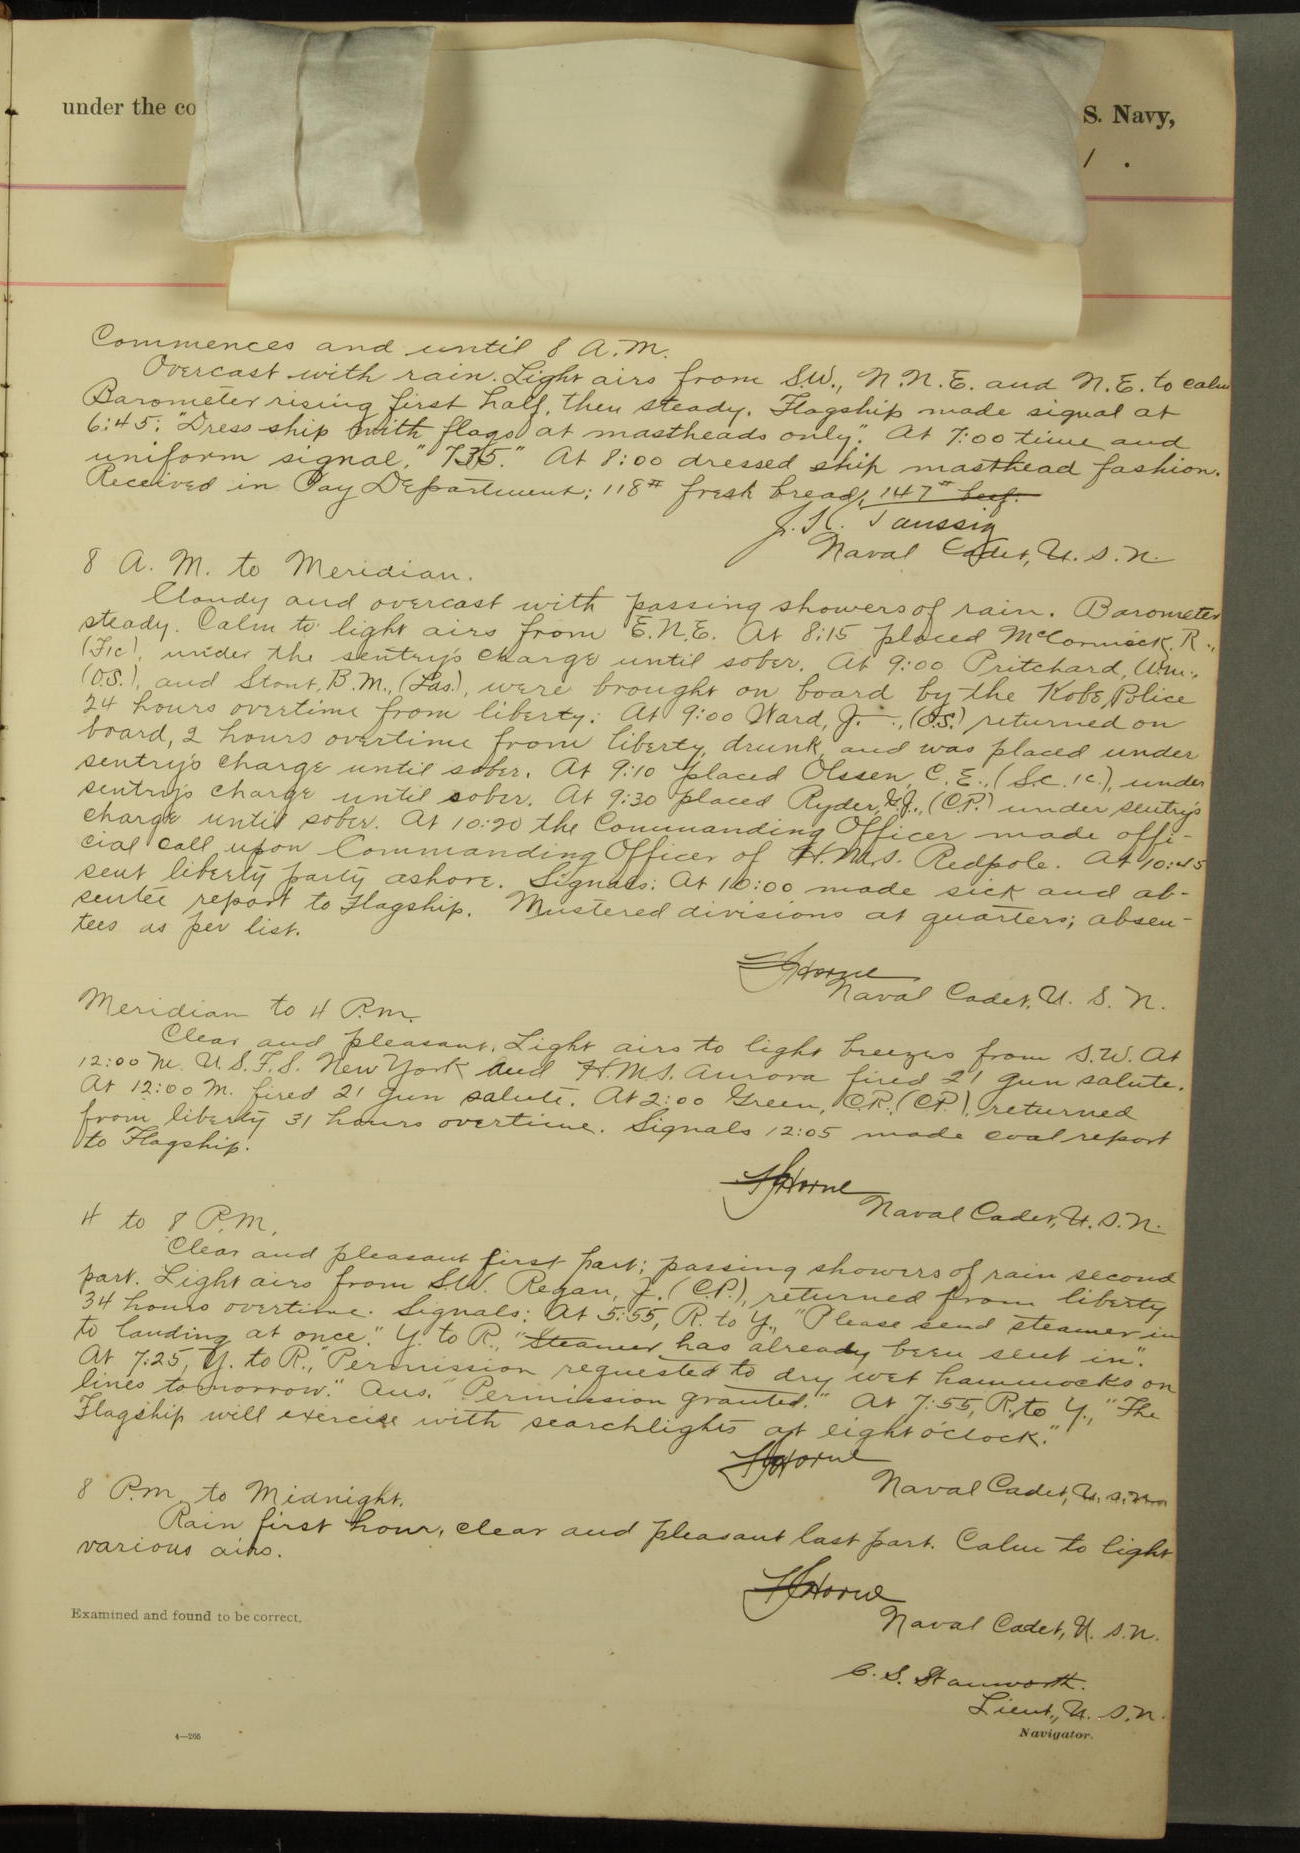 under the co
S. Navy,
1 .
Commences and until 8 A.M.
Overcast with rain. Light airs from S.W., N.N.E. and N.E. to calm
Barometer rising first half, then steady. Flagship made signal at
6:45: "Dress ship with flags at mastheads only." At 7:00 time and
uniform signal, "735." At 8:00 dressed ship masthead fashion.
Received in Pay Department: 118# fresh bread, 147# beef.
J.K. Taussig
Naval Cadet, U.S.N.
8 A.M. to Meridian.
Cloudy and overcast with passing showers of rain. Barometer
steady. Calm to light airs from E.N.E. At 8:15 placed McCormick, R.,
(F1c), under the sentry's charge until sober. At 9:00 Pritchard, Wm.,
(O.S.), and Stout, B.M., (Las.), were brought on board by the Kobe Police
24 hours overtime from liberty. At 9:00 Ward, J. –., (O.S.) returned on
board, 2 hours overtime from liberty, drunk, and was placed under
sentry's charge until sober. At 9:10 placed Olssen, C.E., (S.c. 1c.), under
sentry's charge until sober. At 9:30 placed Ryder, J., (C.P.) under sentry's
charge until sober. At 10:20 the Commanding Officer made offi-
cial call upon Commanding Officer of H.M.S. Redpole. At 10:45
sent liberty party ashore. Signals: At 10:00 made sick and ab-
sentee report to Flagship. Mustered divisions at quarters; absen-
tees as per list.
Horne
Naval Cadet, U.S.N.
Meridian to 4 P.M.
Clear and pleasant. Light airs to light breezes from S.W. At
12:00 M. U.S.F.S. New York and H.M.S. Aurora fired 21 gun salute.
At 12:00 M. fired 21 gun salute. At 2:00 Green, C.R., (C.P.), returned
from liberty 31 hours overtime. Signals 12:05 made coal report
to Flagship.
Horne
Naval Cadet, U.S.N.
4 to 8 P.M.
Clear and pleasant first part; passing showers of rain second
part. Light airs from S.W. Regan, J. (C.P.), returned from liberty
34 hours overtime. Signals: At 5:55, R. to Y., "Please send steamer in
to landing at once." Y. to R., "Steamer has already been sent in".
At 7:25, Y. to R., "Permission requested to dry wet hammocks on
lines tomorrow." Ans. "Permission granted." At 7:55, R. to Y., "The
Flagship will exercise with searchlights at eight o'clock."
Horne
Naval Cadet, U.S.N.
8 P.M. to Midnight.
Rain first hour, clear and pleasant last part. Calm to light
various airs.
Horne
Naval Cadet, U.S.N.
Examined and found to be correct.
C.S. Stanworth.
Lieut., U.S.N.
Navigator.
4—265